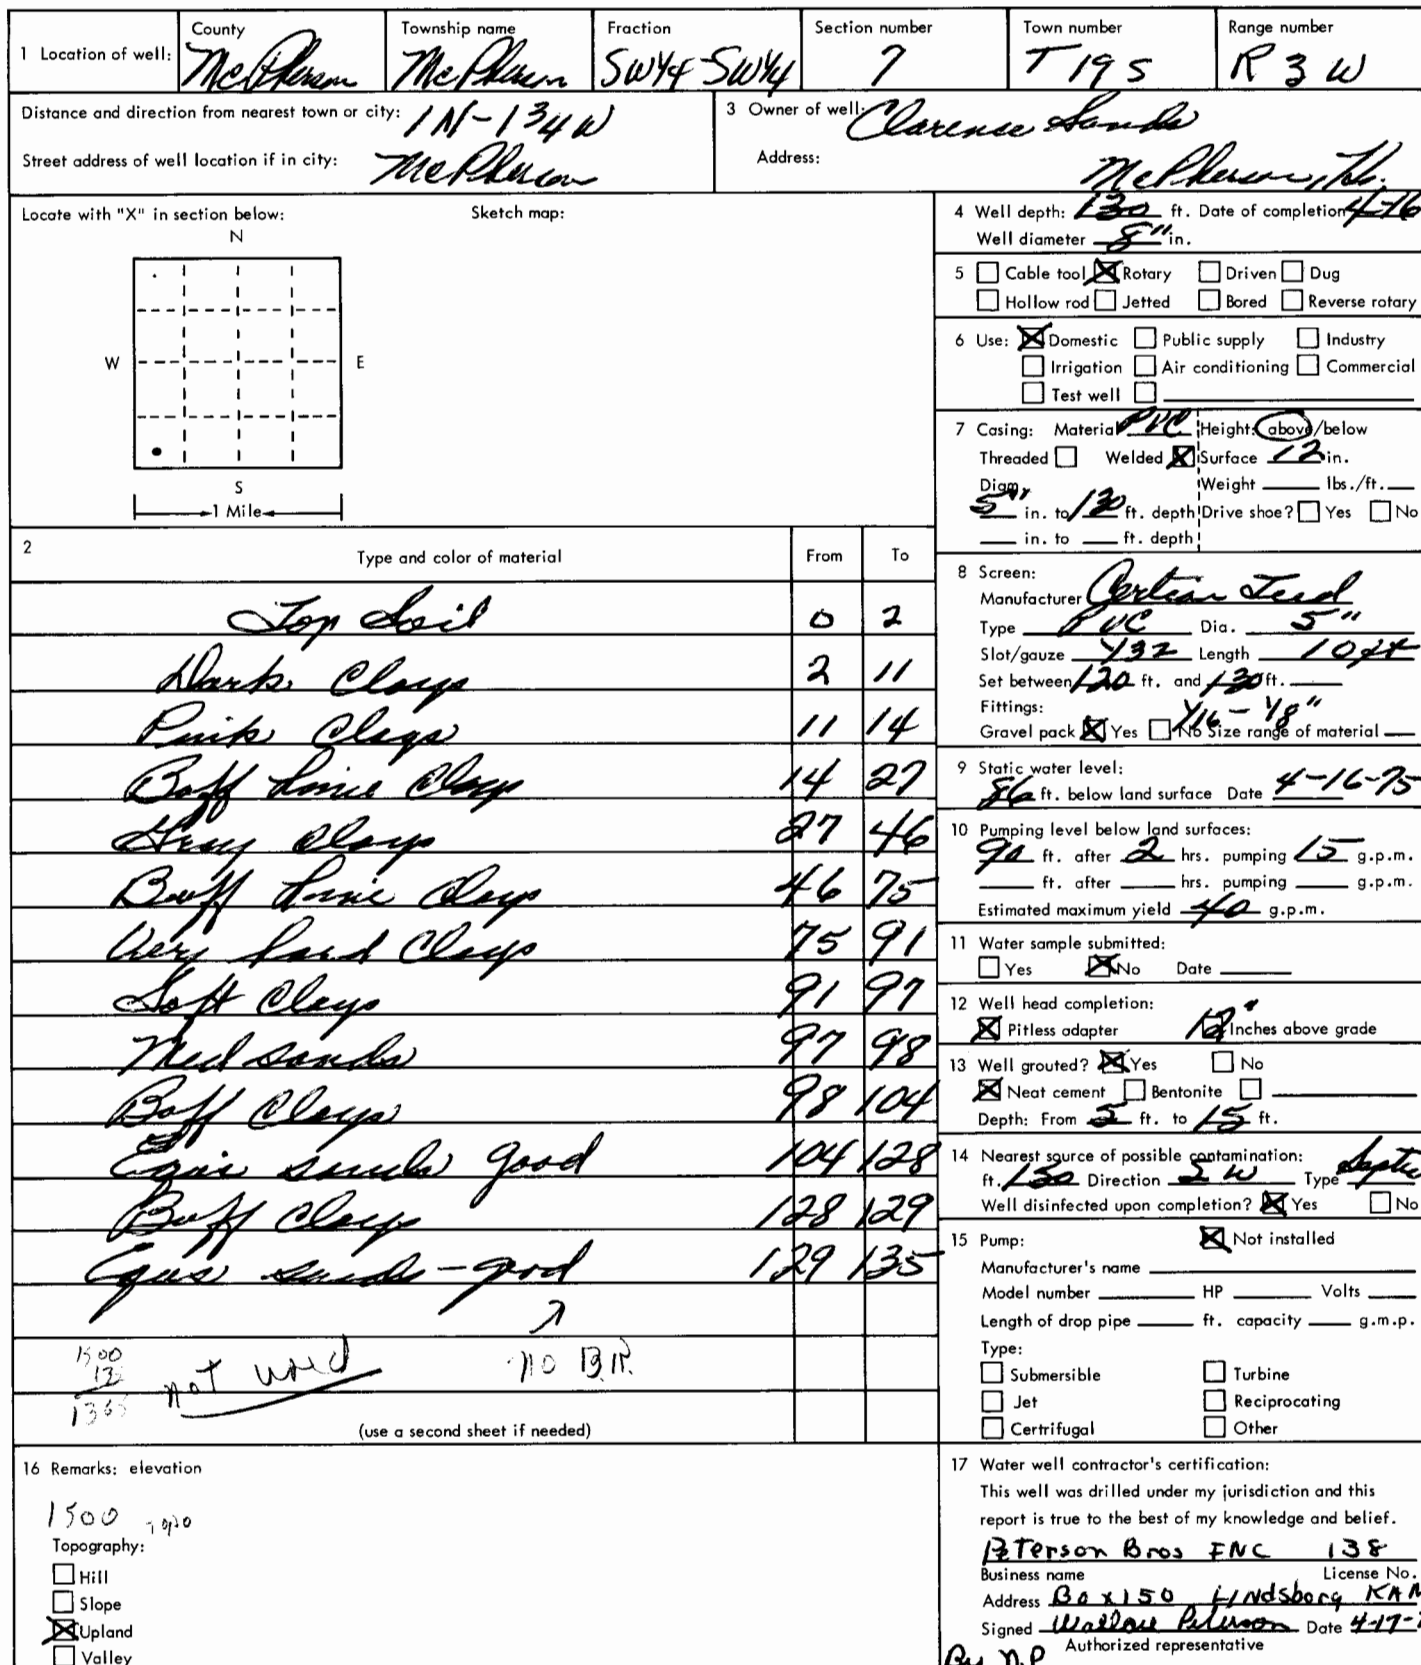 1 Location of well: County McPherson Township name McPherson Fraction SW1/4-SW1/4 Section number 7 Town number T 19 S Range number R 3 W
Distance and direction from nearest town or city: 1N-1 3/4 W
Street address of well location if in city: McPherson
3 Owner of well: Clarence Sands
Address: McPherson, Ks.
Locate with "X" in section below: Sketch map:
N
W E
S
1 Mile
4 Well depth: 130 ft. Date of completion 4-16
Well diameter 8" in.
5 Cable tool Rotary Driven Dug
Hollow rod Jetted Bored Reverse rotary
6 Use: Domestic Public supply Industry
Irrigation Air conditioning Commercial
Test well
7 Casing: Material PVC Height: above/below
Threaded Welded Surface 12 in.
Diam. Weight lbs./ft.
5" in. to 130 ft. depth Drive shoe? Yes No
in. to ft. depth
2 Type and color of material From To
Top Soil 0 2
Dark Clays 2 11
Pink Clays 11 14
Boff Lime Clays 14 27
Gray Clays 27 46
Buff Lime Clays 46 75
Very hard Clays 75 91
Soft Clays 91 97
Med sands 97 98
Boff Clays 98 104
sands good 104 128
Buff Clays 128 129
sands-good 129 135
1500
not used no B.R.
(use a second sheet if needed)
8 Screen:
Manufacturer Certian Teed
Type PVC Dia. 5"
Slot/gauze 1/32 Length 10 ft
Set between 120 ft. and 130 ft.
Fittings: 1/16 - 1/8"
Gravel pack Yes No Size range of material
9 Static water level:
86 ft. below land surface Date 4-16-75
10 Pumping level below land surfaces:
90 ft. after 2 hrs. pumping 15 g.p.m.
ft. after hrs. pumping g.p.m.
Estimated maximum yield 40 g.p.m.
11 Water sample submitted:
Yes No Date
12 Well head completion:
Pitless adapter 12" Inches above grade
13 Well grouted? Yes No
Neat cement Bentonite
Depth: From 5 ft. to 15 ft.
14 Nearest source of possible contamination:
ft. 150 Direction SW Type Septic
Well disinfected upon completion? Yes No
15 Pump: Not installed
Manufacturer's name
Model number HP Volts
Length of drop pipe ft. capacity g.m.p.
Type:
Submersible Turbine
Jet Reciprocating
Certrifugal Other
16 Remarks: elevation
1500 topo
Topography:
Hill
Slope
Upland
Valley
17 Water well contractor's certification:
This well was drilled under my jurisdiction and this
report is true to the best of my knowledge and belief.
Peterson Bros INC 138
Business name License No.
Address Box 150 Lindsborg KAN
Signed Wallace Peterson Date 4-17-
Authorized representative
By N.P